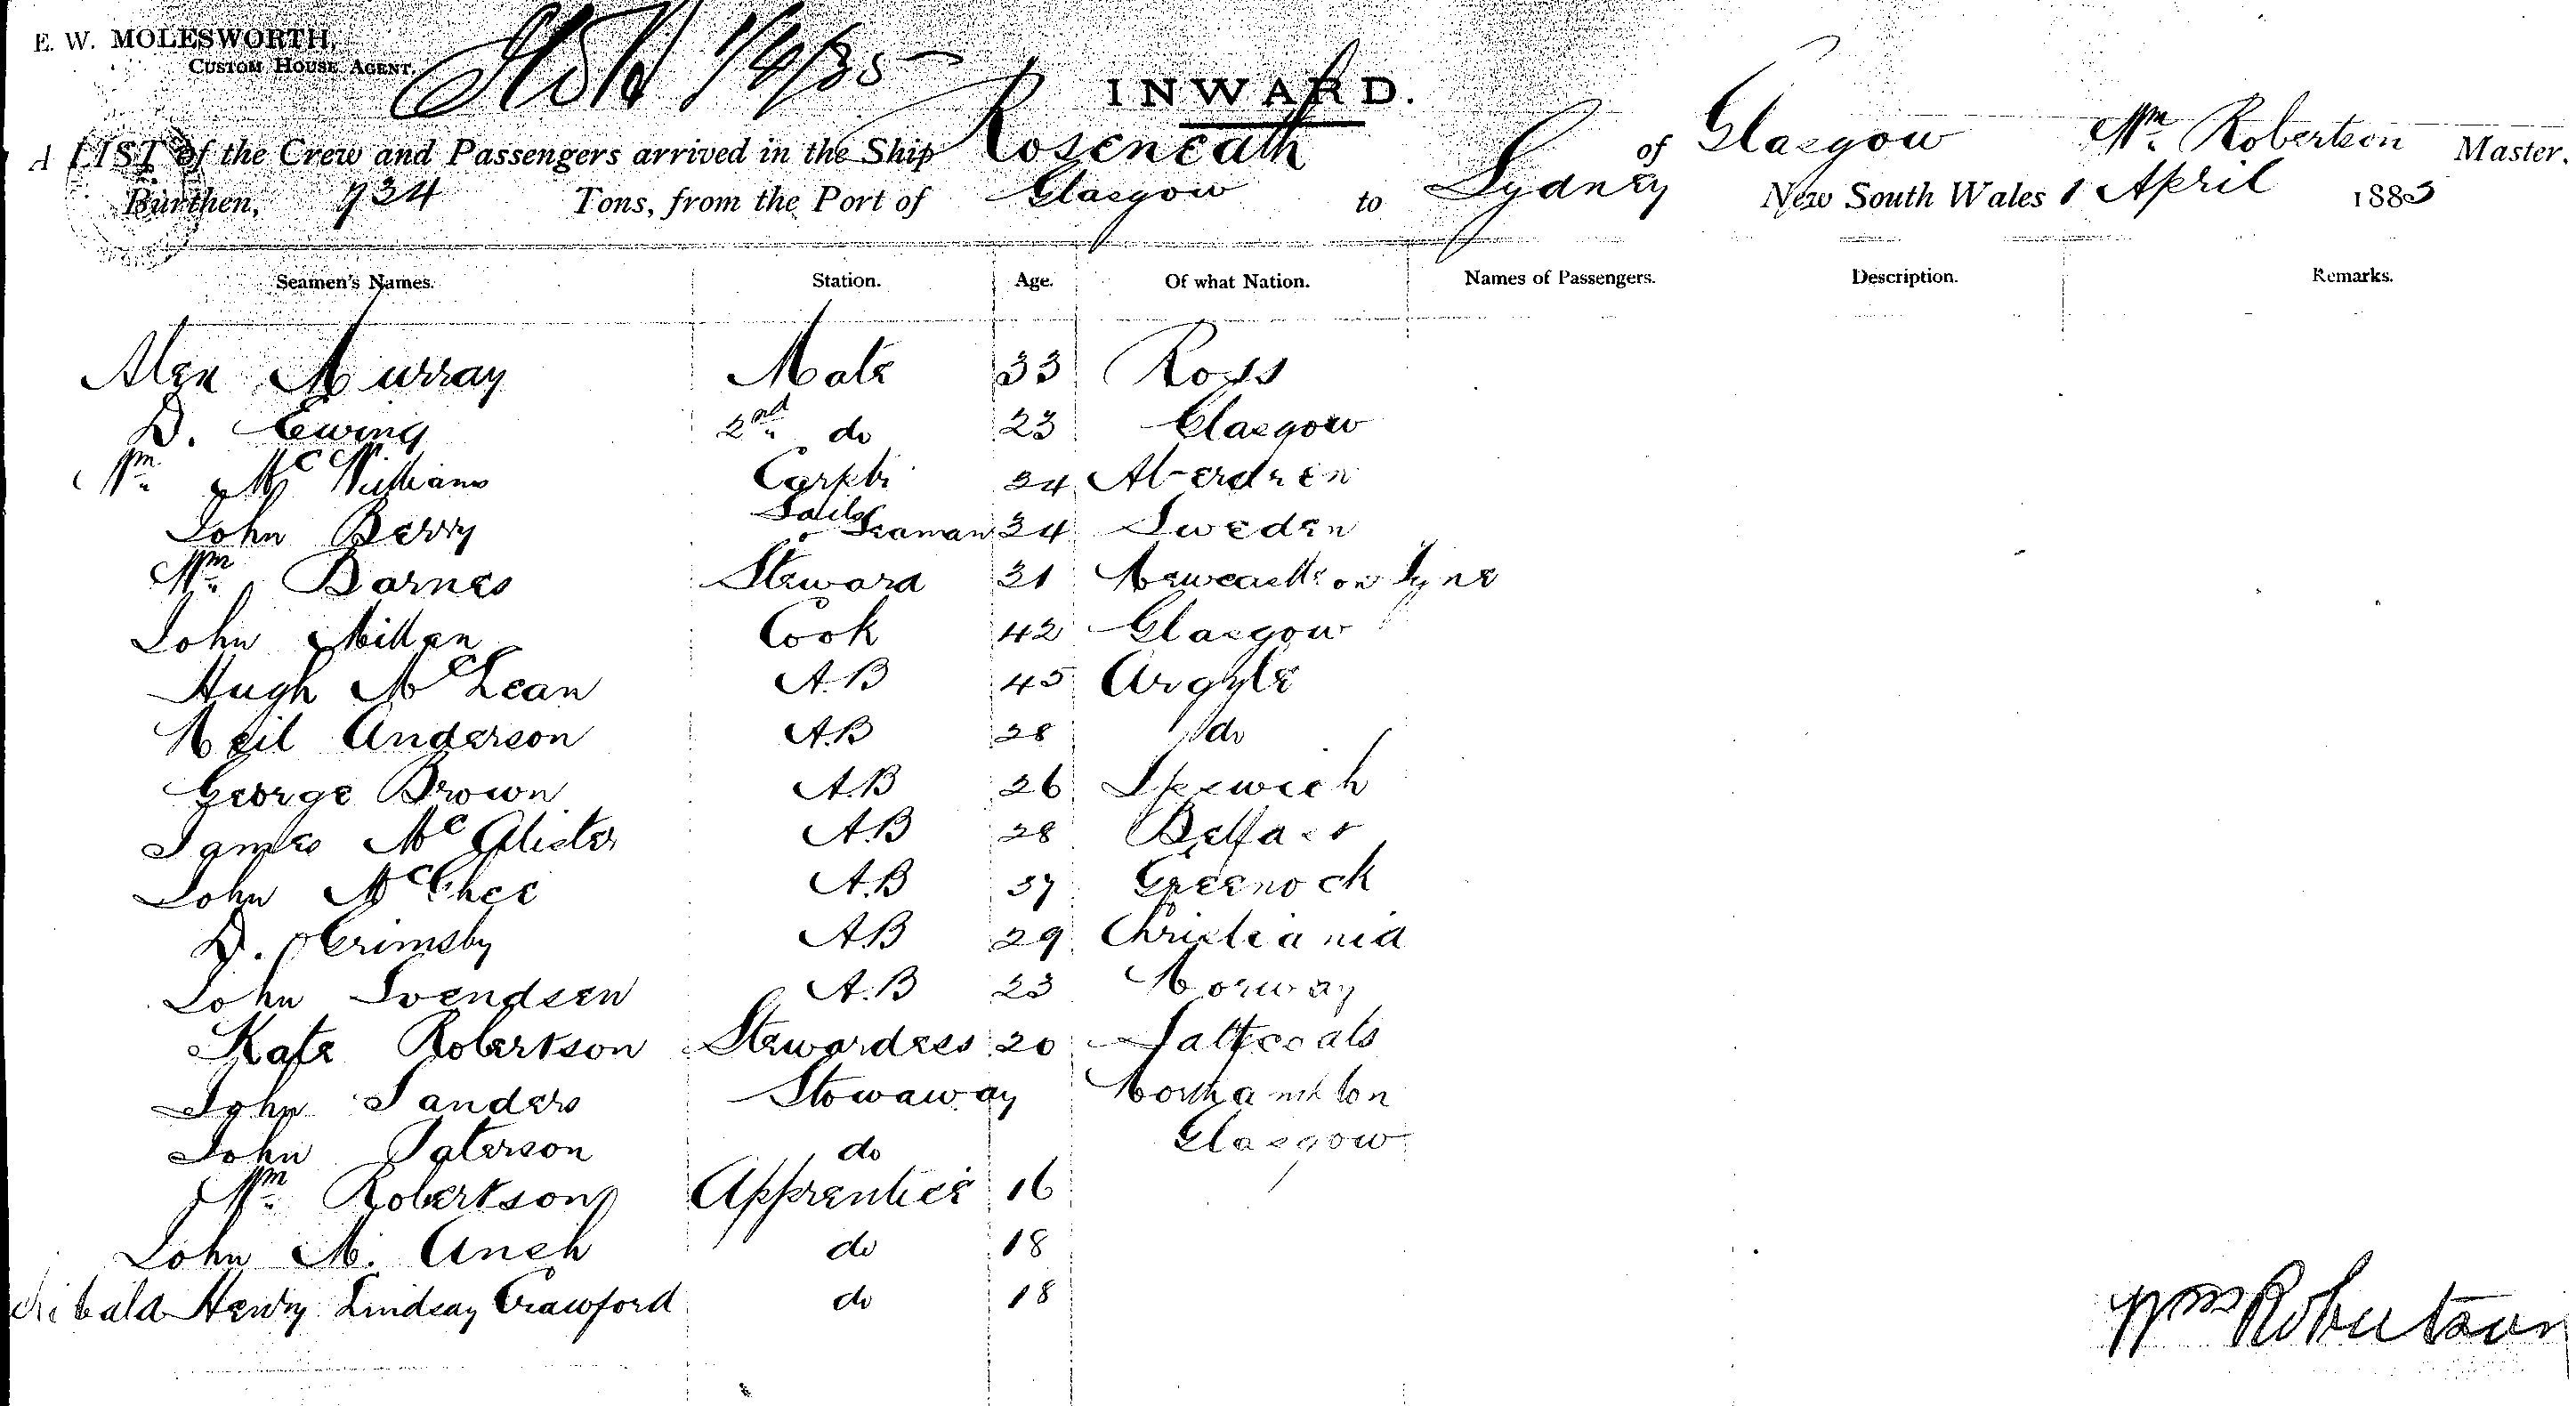 E. W. MOLESWORTH,
CUSTOM HOUSE AGENT.
INWARD.
A LIST of the Crew and Passengers arrived in the Ship Roseneath of Glasgow Wm Robertson Master,
Burthen, 934 Tons, from the Port of Glasgow to Sydney New South Wales 1 April 1883
Seamen's Names. Station. Age. Of what Nation. Names of Passengers. Description. Remarks.
Alex Murray Mate 33 Ross
D. Ewing 2nd do 23 Glasgow
Wm McWilliams Carptr 24 Aberdeen
John Berry Sails Seaman 34 Sweden
Wm Barnes Steward 31 Newcastle on Tyne
John Millan Cook 42 Glasgow
Hugh McLean A.B 45 Argyle
Neil Anderson A.B 28 do
George Brown A.B 26 Ipswich
James McAlister A.B 28 Belfast
John McGhee A.B 37 Greenock
D. Grimsby A.B 29 Christiania
John Svendsen A.B 23 Norway
Kate Robertson Stewardess 20 Saltcoats
John Sanders Stowaway Northampton
John Paterson do Glasgow
Wm Robertson Apprentice 16
John M. do 18
Henry Lindsay Crawford do 18
Wm Robertson